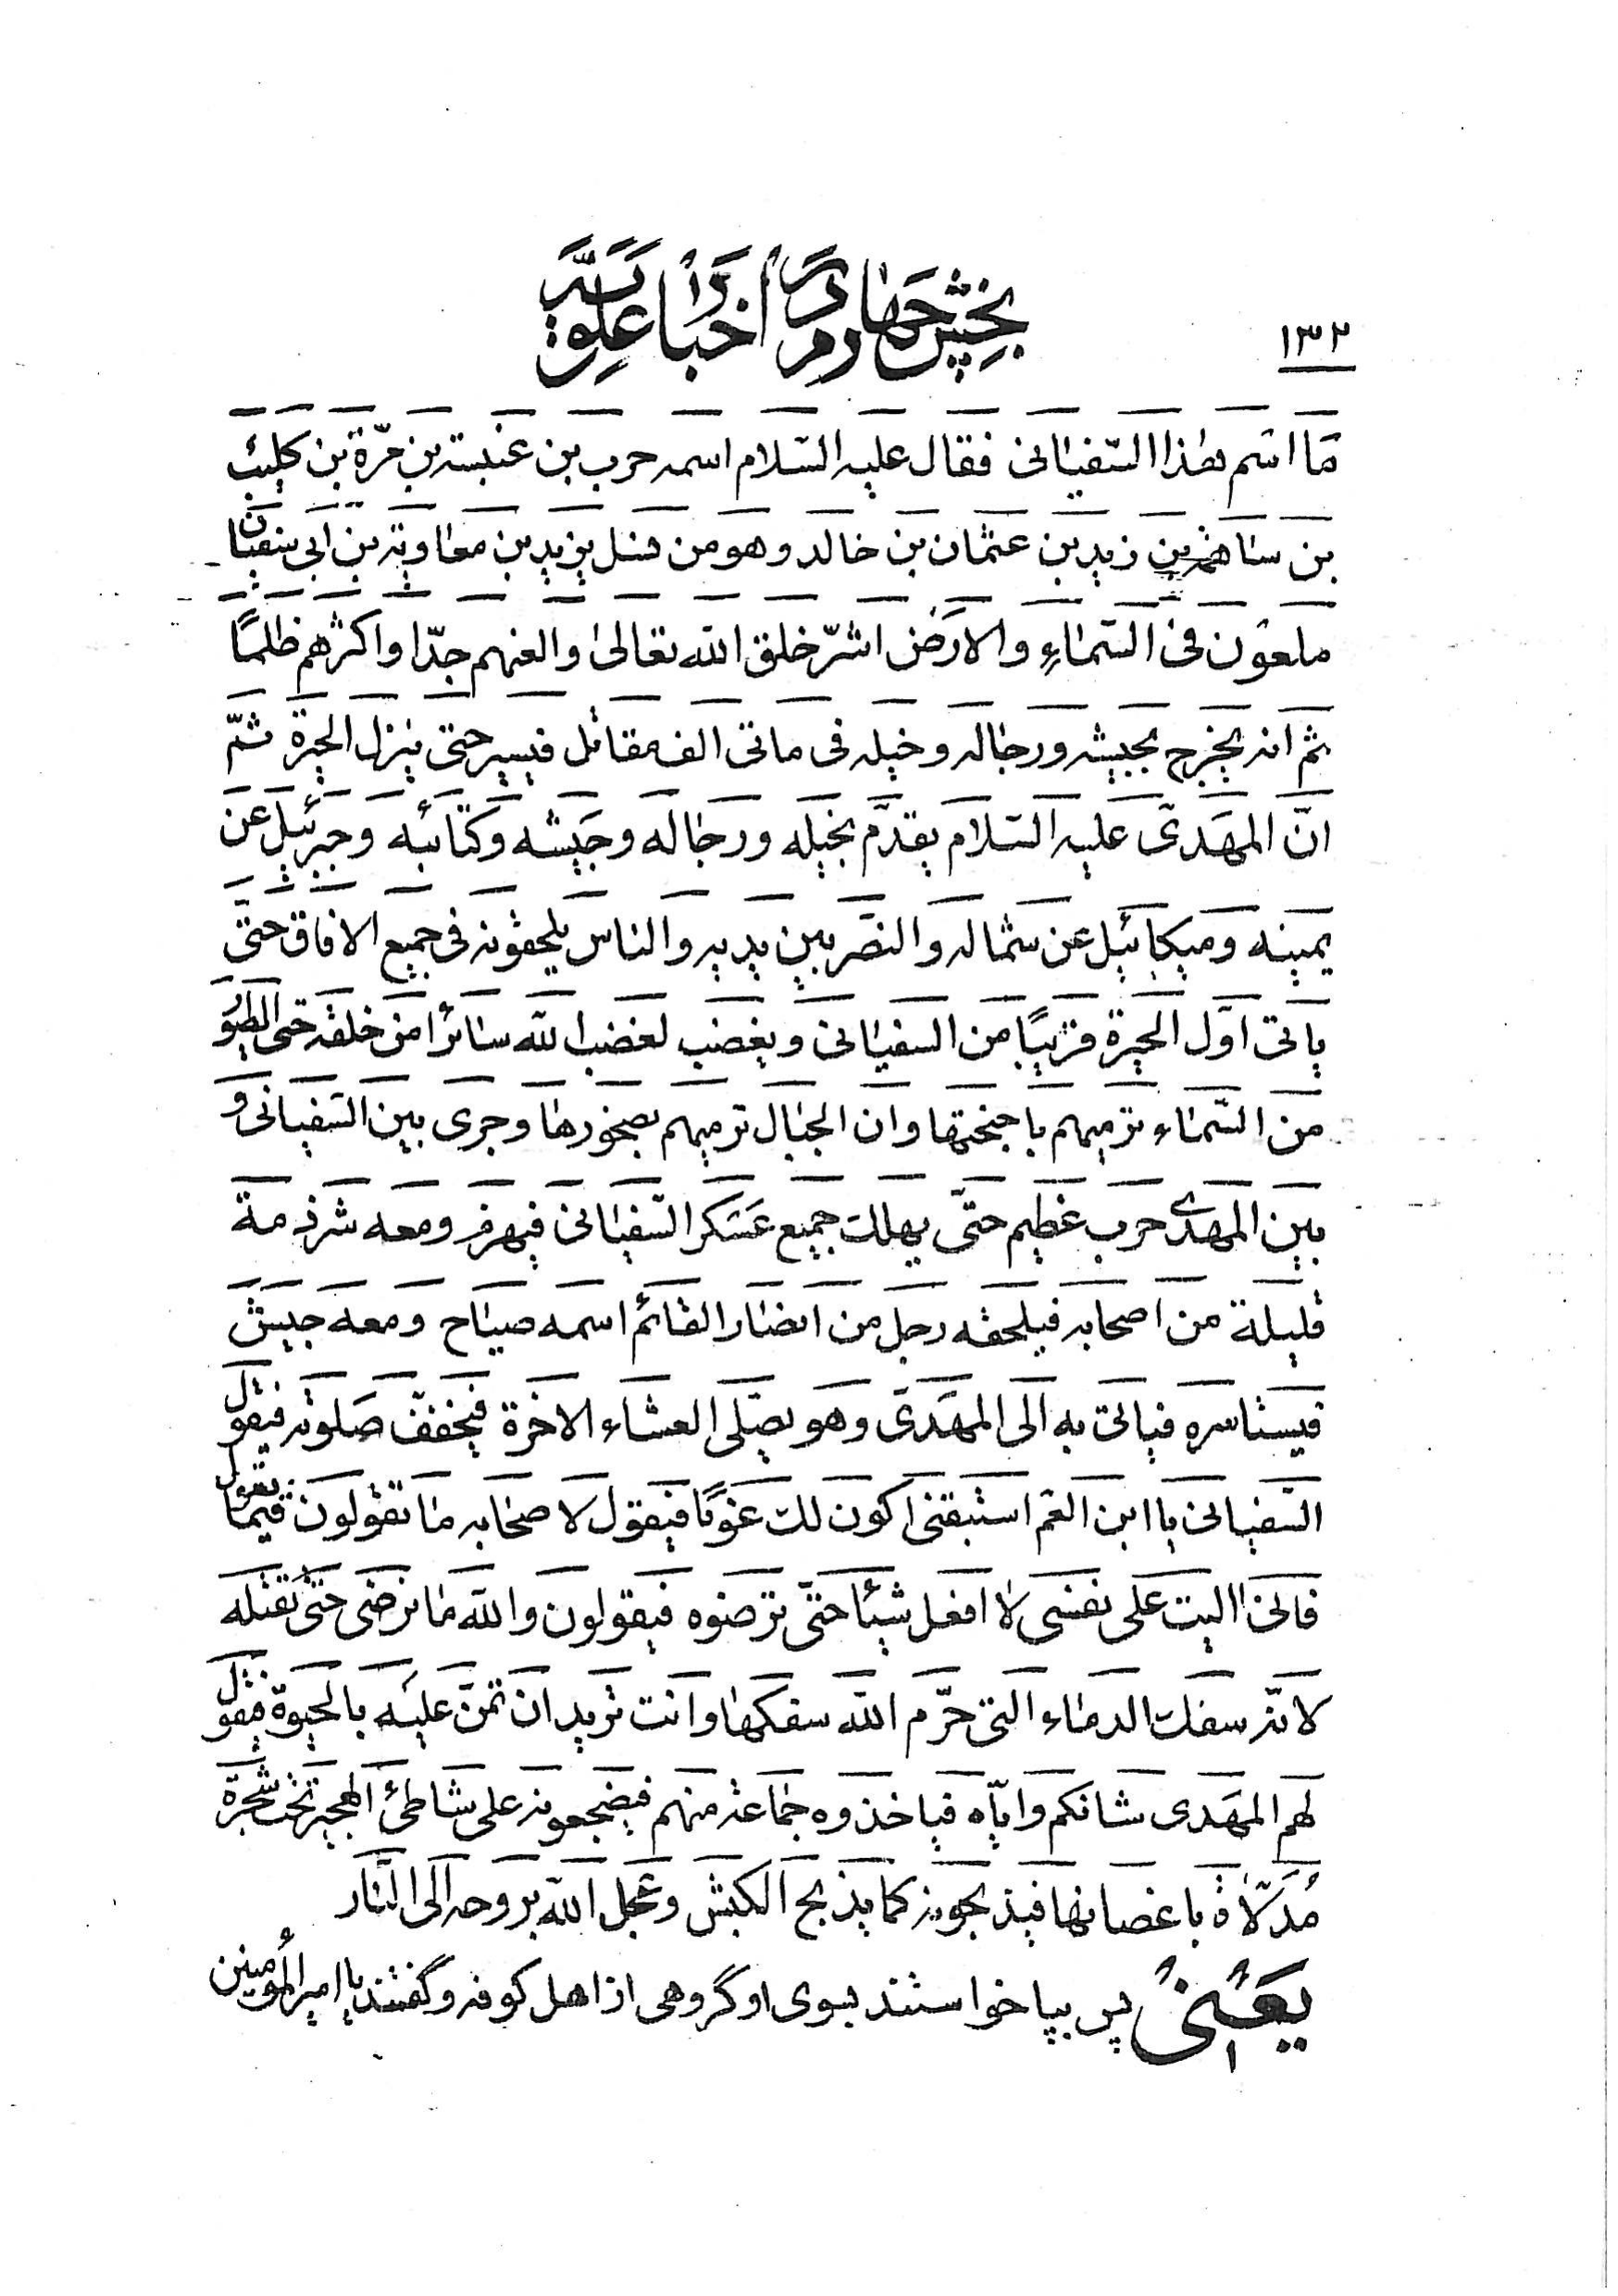 بخش چهارم در اخبار علویّه
۱۳۲
ما اسم هذا السّفیانی فقال علیه السّلام اسمه حرب بن عنبسة بن مرّة بن کلیب
بن ساهمة بن زید بن عثمان بن خالد وهو من نسل یزید بن معاویة بن ابی سفیان
ملعون فی السّماء والارض اشرّ خلق الله تعالی والعنهم جدّا واکثرهم ظلمًا
ثم انه یخرج بجیشه ورجاله وخیله فی ماتی الف مقاتل فیسیر حتی ینزل الحیرة ثمّ
انّ المهدی علیه السّلام یقدّم بخیله ورجاله وجیشه وکتائبه وجبرئیل عن
یمینه ومیکائیل عن شماله والنصر بین یدیه والناس یلحقونه فی جمیع الافاق حتّی
یاتی اوّل الحیرة قریبًا من السفیانی ویغضب لغضب الله سائرا من خلقه حتی الطیور
من السّماء ترمیهم باجنحتها وان الجبال ترمیهم بصخورها وجری بین السّفیانی و
بین المهدی حرب عظیم حتّی یهلک جمیع عسکر السّفیانی فیهزم ومعه شرذمة
قلیلة من اصحابه فیلحقه رجل من انصار القائم اسمه صیاح ومعه جیش
فیستاسره فیاتی به الی المهدی وهو یصّلی العشاء الاخرة فیخفّف صلوته فیقول
السّفیانی یا ابن العم استبقنی اکون لک عونًا فیقول لاصحابه ما تقولون فیما یقول
فانی الیت علی نفسی لا افعل شیئا حتّی ترضوه فیقولون والله ما نرضی حتّی تقتله
لانّه سفک الدماء التی حرّم الله سفکها وانت ترید ان تمنّ علیه بالحیوة فیقول
لهم المهدی شانکم وایّاه فیاخذوه جماعة منهم فیضجعونه علی شاطئ الهجیر تحت شجرة
مُدَلّاة باغصانها فیذبحونه کما یذبح الکبش وعجل الله بروحه الی النّار
یَعنی پس بپا خواستند بسوی او گروهی از اهل کوفه و گفتند یا امیرالمؤمنین